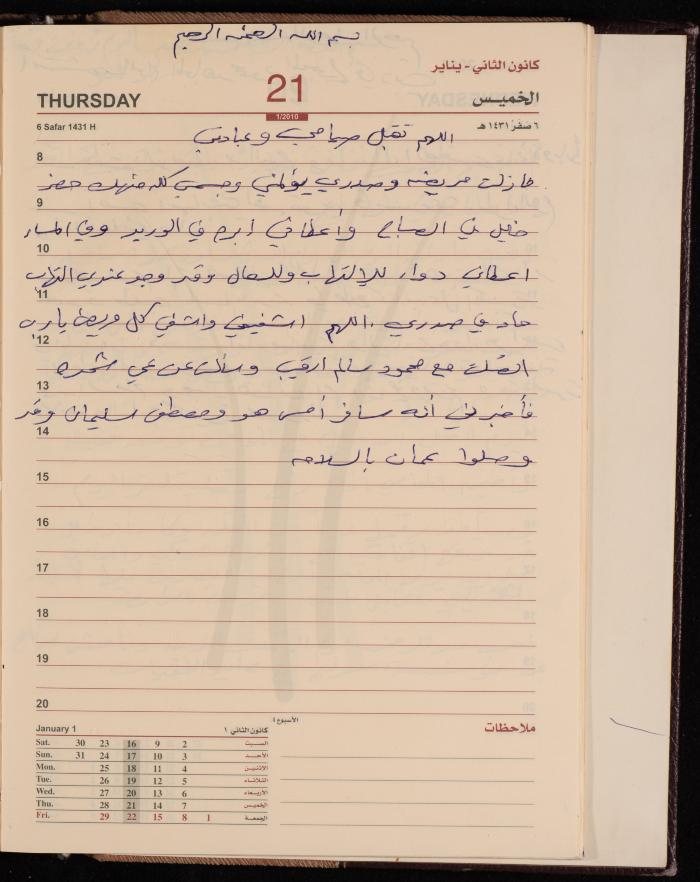 بسم الله الرحمن الرحيم
كانون الثاني - يناير
THURSDAY 21 الخميس
1/2010
6 Safar 1431 H ٦ صفر ١٤٣١ هـ
اللهم تقبل صيامي وعبادتي
8
مازلت مريضه وصدري يؤلمني وجسمي كله منهك حضر
9
خليل في الصباح وأعطاني أبره في الوريد وفي المساء
10
اعطاني دواء للإلتهاب وللسعال وقد وجد عندي التهاب
11
حاد في صدري . اللهم اشفيني واشفي كل مريض يارب
12
اتصلت مع محمود سالم ارقيب وسألت عن عمي شحده
13
فأخبرني أنه سافر أمس هو ومصطفى سليمان وقد
14
وصلوا عمان بالسلامه
15
16
17
18
19
20
الأسبوع ٤
ملاحظات
January 1 كانون الثاني ١
Sat. 30 23 16 9 2 السبت
Sun. 31 24 17 10 3 الأحد
Mon. 25 18 11 4 الاثنين
Tue. 26 19 12 5 الثلاثاء
Wed. 27 20 13 6 الأربعاء
Thu. 28 21 14 7 الخميس
Fri. 29 22 15 8 1 الجمعة